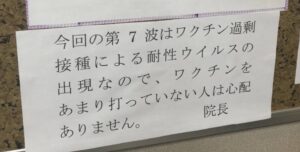 今回の第7波はワクチン過剰
接種による耐性ウイルスの
出現なので、ワクチンを
あまり打っていない人は心配
ありません。 院長